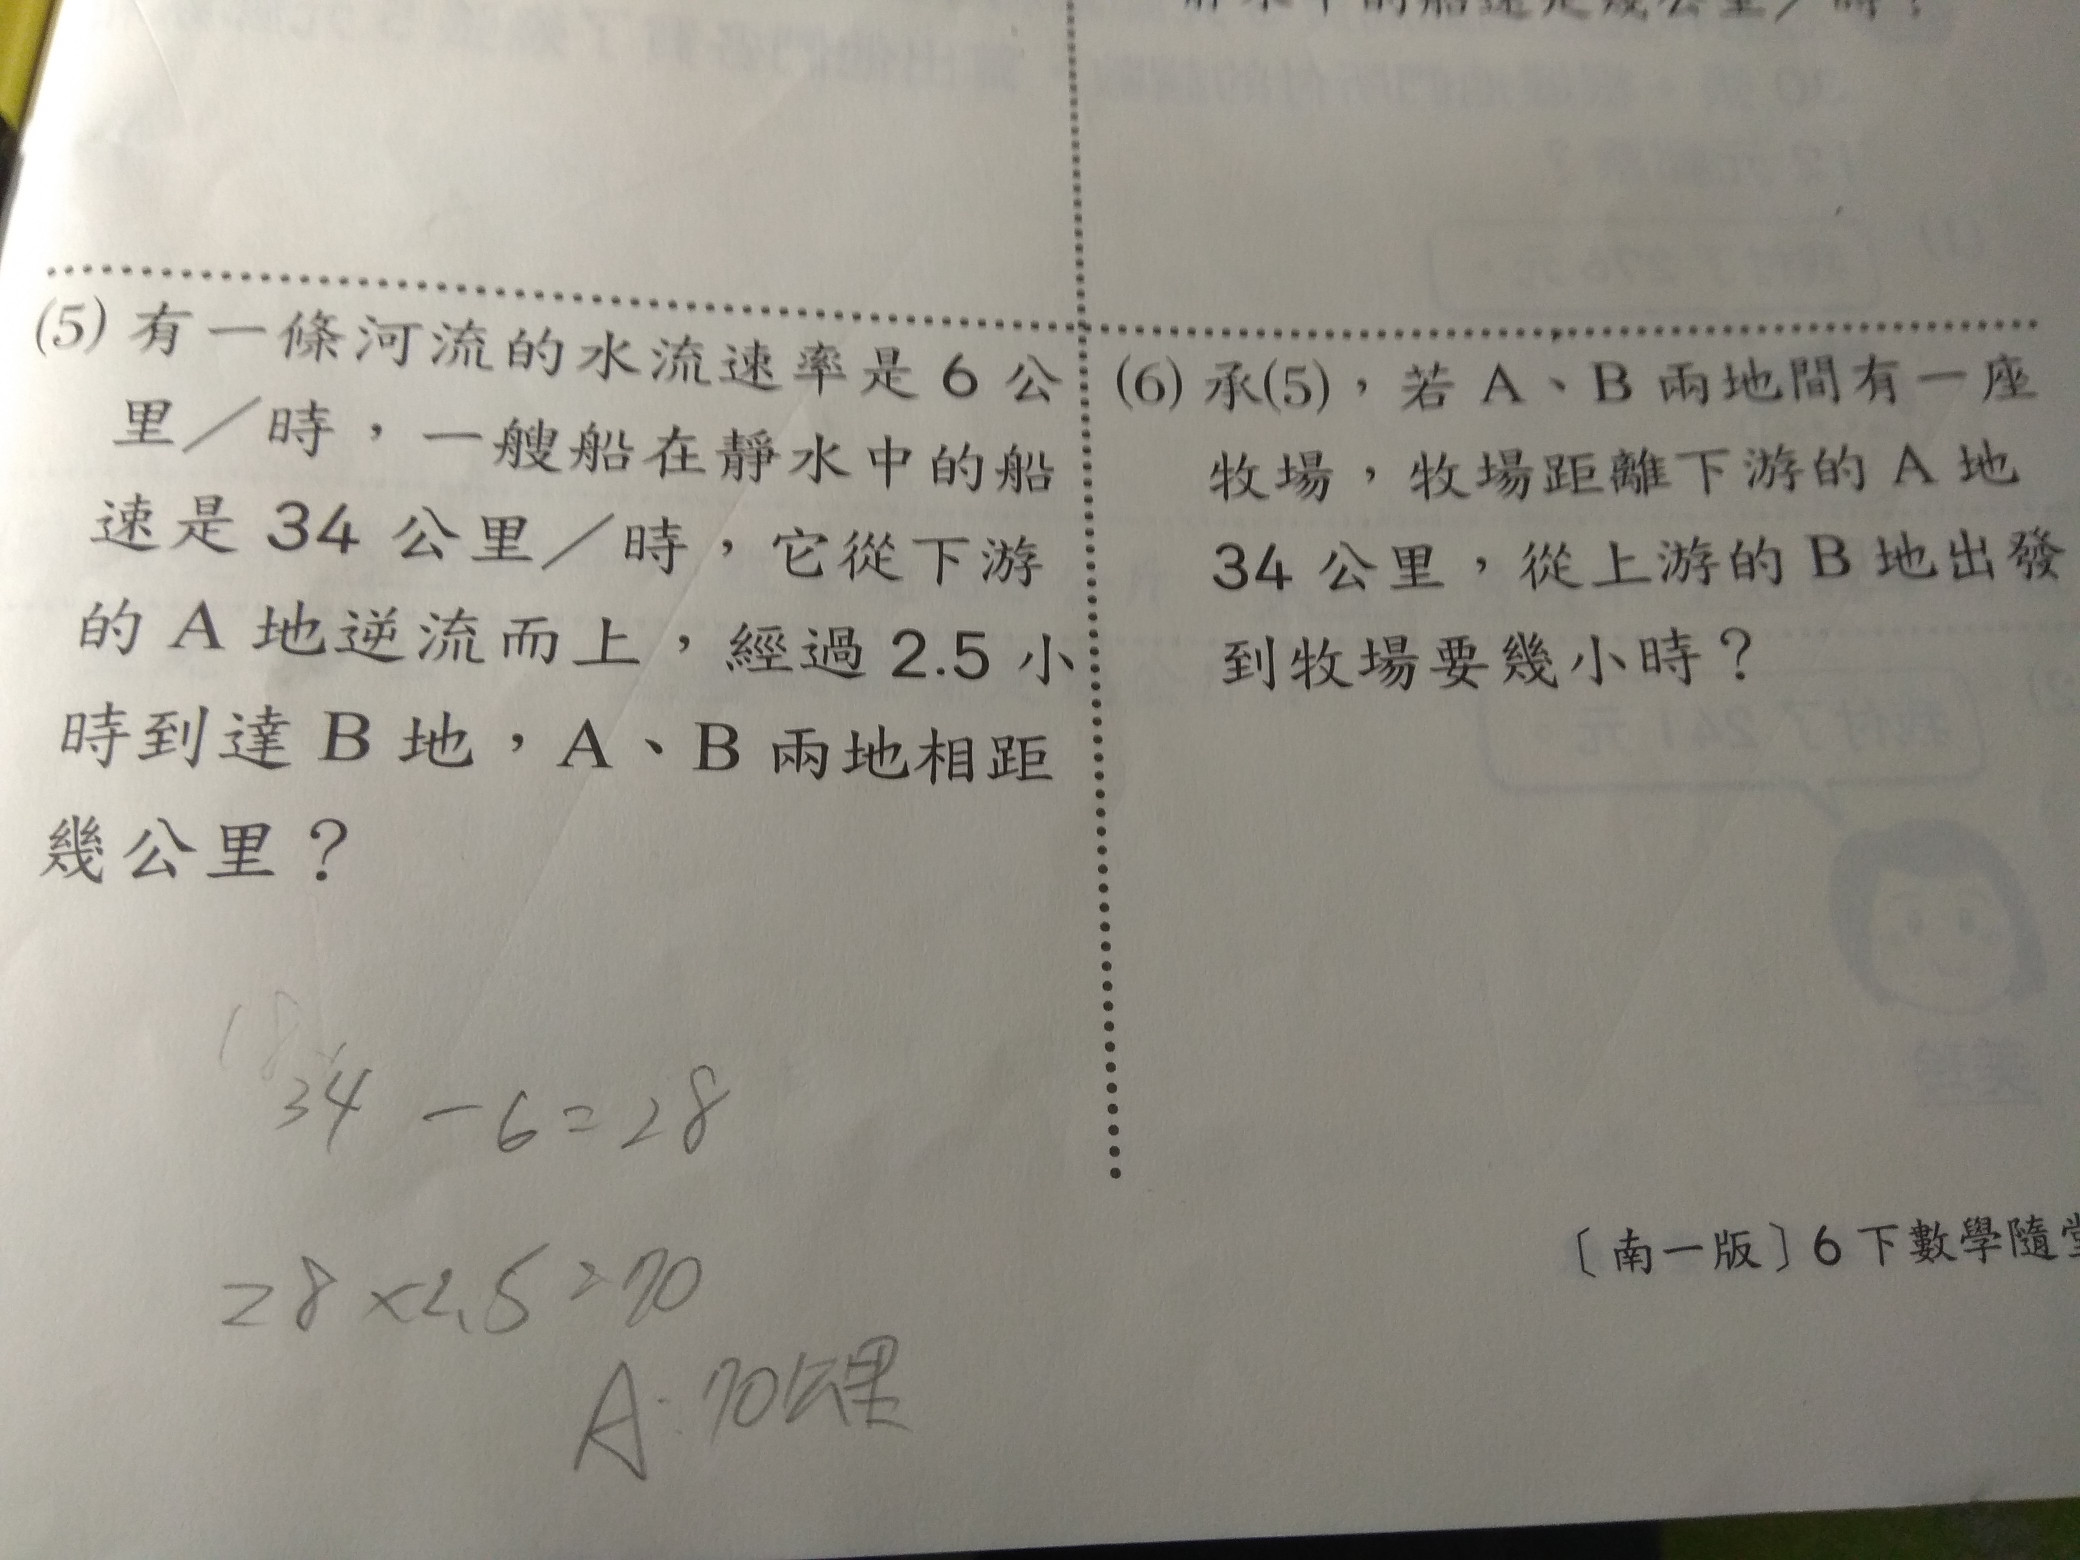 (5) 有一條河流的水流速率是 6 公
里／時，一艘船在靜水中的船
速是 34 公里／時，它從下游
的 A 地逆流而上，經過 2.5 小
時到達 B 地，A、B 兩地相距
幾公里？
34 － 6 = 28
28 × 2.5 = 70
A：70公里
(6) 承(5)，若 A、B 兩地間有一座
牧場，牧場距離下游的 A 地
34 公里，從上游的 B 地出發
到牧場要幾小時？
〔南一版〕6 下數學隨堂